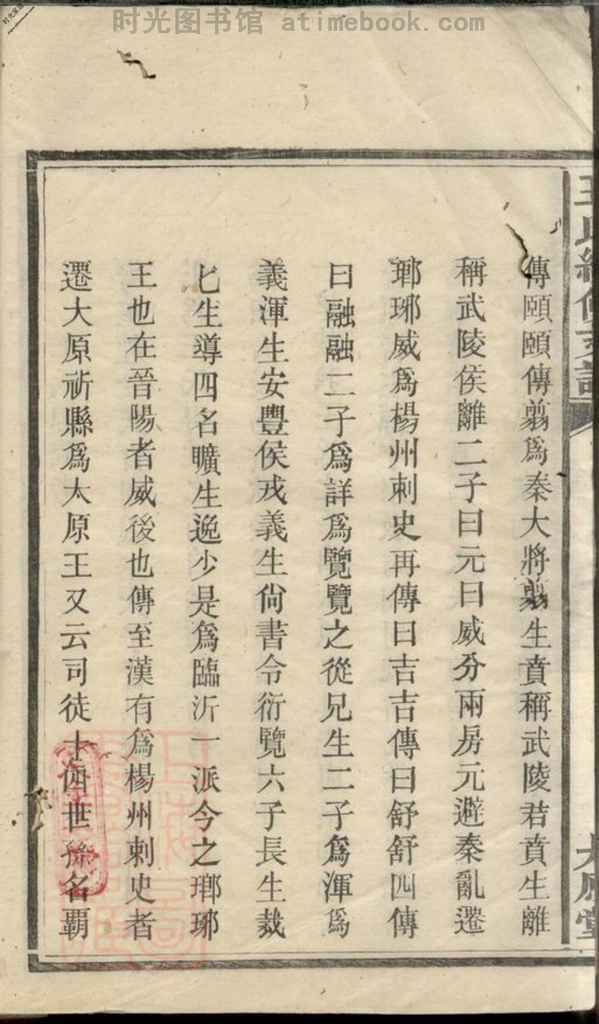 时光图书馆 atimebook.com
王氏續修支譜
太原堂
傳頤頤傳翦爲秦大將翦生賁稱武陵君賁生離
稱武陵侯離二子曰元曰威分兩房元避秦亂遷
瑯琊威爲楊州刺史再傳曰吉吉傳曰舒舒四傳
曰融融二子爲詳爲覽覽之從兄生二子爲渾爲
義渾生安豐侯戎義生尙書令衍覽六子長生裁
匕生導四名曠生逸少是爲臨沂一派今之瑯琊
王也在晉陽者威後也傳至漢有爲楊州刺史者
遷大原祈縣爲太原王又云司徒十四世孫名覇